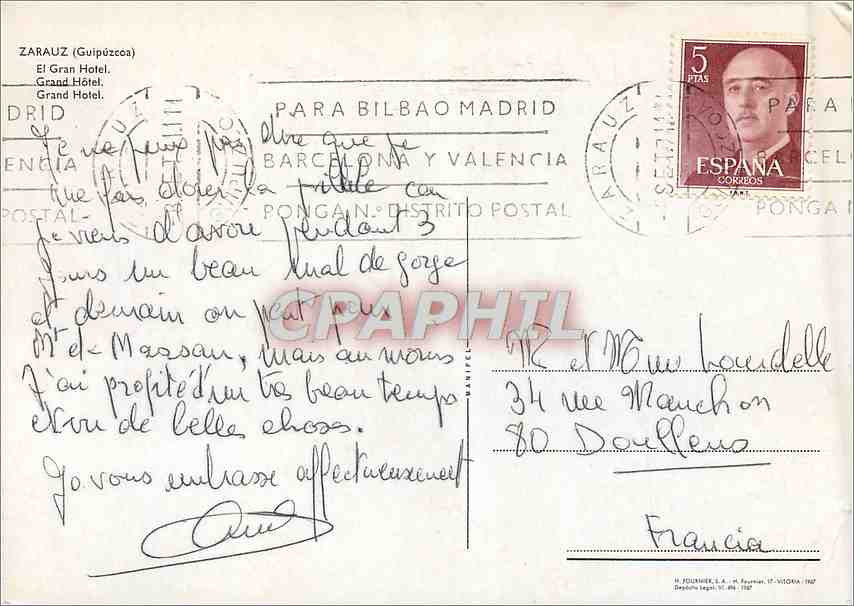 ZARAUZ (Guipúzcoa)
El Gran Hotel.
Grand Hôtel.
Grand Hotel.
PARA BILBAO MADRID
BARCELONA Y VALENCIA
PONGA N.º DISTRITO POSTAL
DRID
ENCIA
POSTAL
ZARAUZ
5
PTAS
ESPAÑA
CORREOS
F.N.M.T.
PARA
BARCEL
PONGA N
Je ne peux pas dire que je
me fais dorer la pilule car
je viens d'avoir pendant 3
jours un beau mal de gorge
et demain on part pour
Mt de Massan, mais au moins
J'ai profité d'un très beau temps
et vu de belles choses.
Je vous embrasse affectueusement
CPAPHIL
MANIPEL
M et Mme Lourdelle
34 rue Manchon
80 Doullens
Francia
H. FOURNIER, S. A. - H. Fournier, 17 - VITORIA - 1967
Depósito Legal: VI. 496 - 1967